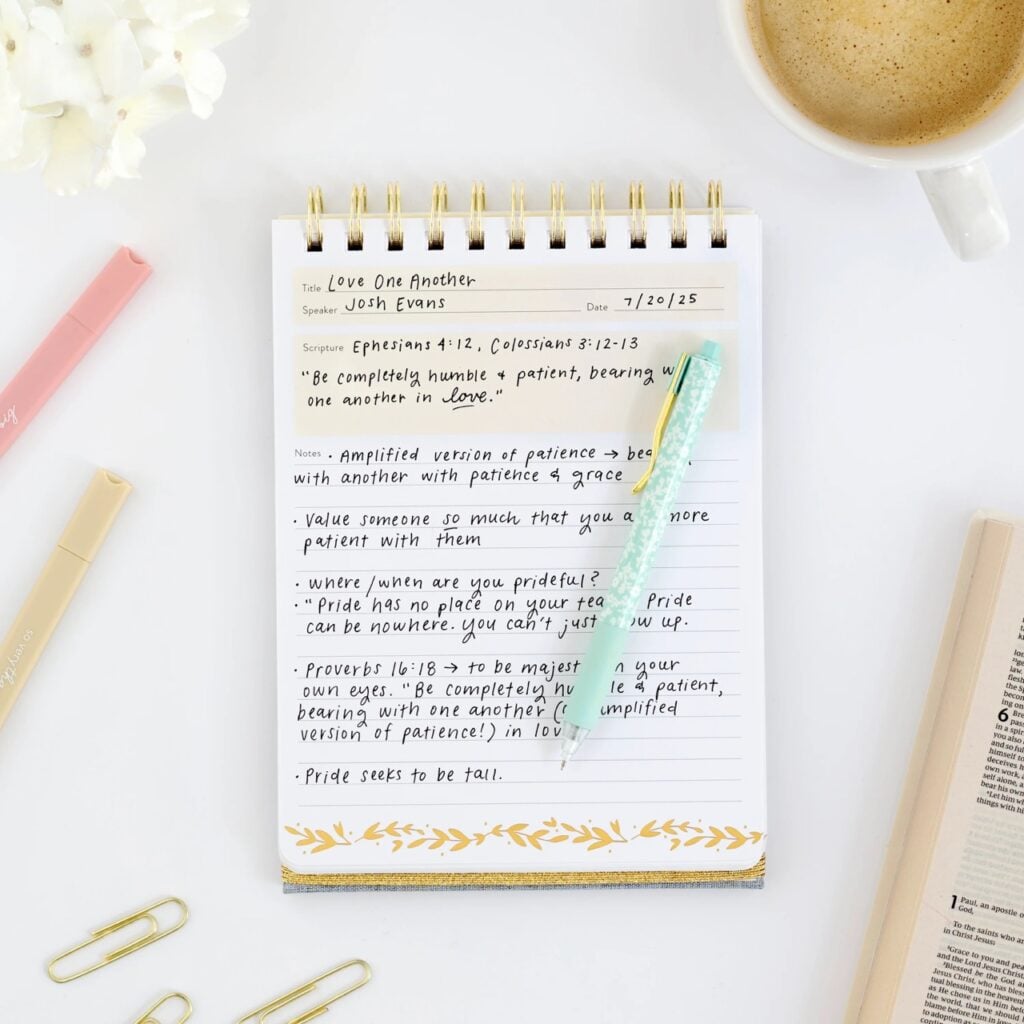 Title Love One Another
Speaker Josh Evans Date 7/20/25
Scripture Ephesians 4:12, Colossians 3:12-13
"Be completely humble & patient, bearing
one another in love."
Notes • Amplified version of patience →
with another with patience & grace
• Value someone so much that you more
patient with them
• where/when are you prideful?
• "Pride has no place on your Pride
can be nowhere. You can't just up.
• Proverbs 16:18 → to be your
own eyes. "Be completely & patient,
bearing with one another ( amplified
version of patience!) in
• Pride seeks to be tall.
so very
big
6
1 Paul, an apostle
God,
To the saints who
in Christ Jesus:
Grace to you and
and the Lord Jesus
Blessed be the God
Jesus Christ, who has
in the
as He chose us in Him
the world, that we should
blame before Him in
to adoption as